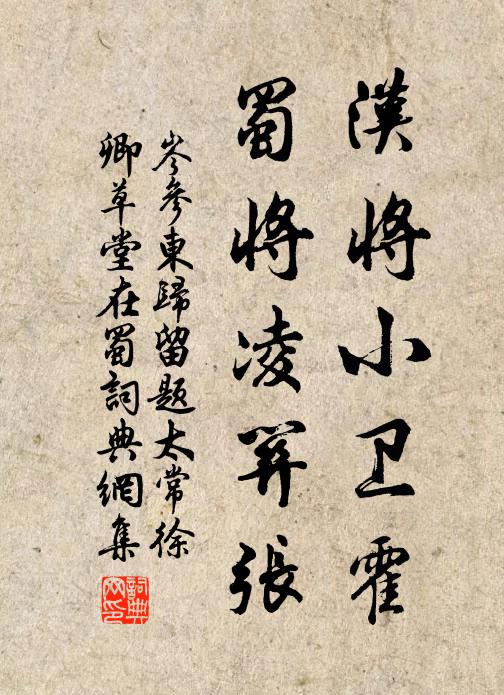 漢將小卫霍
蜀將凌關張
岑參東歸留題太常徐
卿草堂在蜀詞典網集
詞典
网印